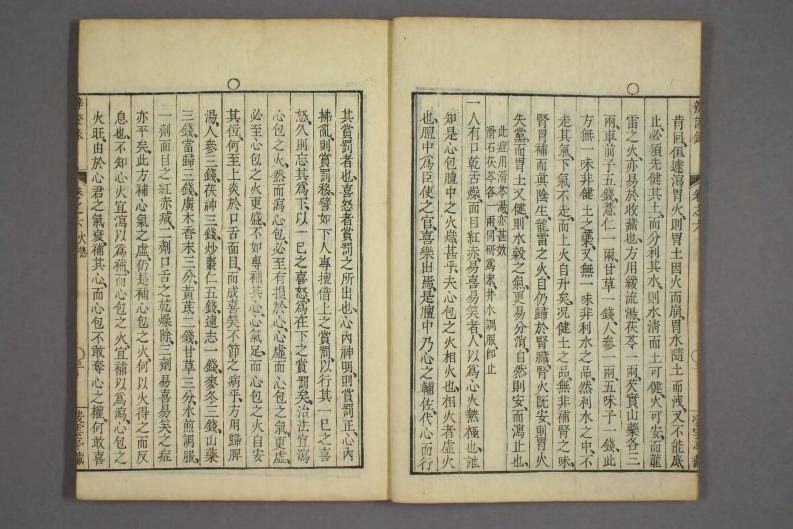 肯回但遽瀉胃火則胃土因火而崩胃水隨土而洩又不能底
止必須先健其土而分利其水則水清而土可健火可安而龍
雷之火亦易於收藏也方用緩流湯茯苓一兩芡實山藥各三
兩車前子五錢薏仁一兩甘草一錢人參一兩五味子一錢此
方無一味非健土之藥又無一味非利水之品然利水之中不
走其氣下氣不走而上火自升矣況健土之品無非補腎之味
腎胃補而真陰生龍雷之火自仍歸於腎臟腎火既安則胃火
失黨而胃土又健則水穀之氣更易分消自然則安而瀉止也
此症用滑苓湯亦甚效
滑石茯苓各一兩同研爲末井水調服即止
一人有口乾舌燥面目紅赤易喜易笑者人以爲心火熱極也誰
知是心包膻中之火熾甚乎夫心包之火相火也相火者虛火
也膻中爲臣使之官喜樂出焉是膻中乃心之輔佐代心而行
其賞罰者也喜怒者賞罰之所出也心內神明則賞罰正心內
拂亂則賞罰移譬如下人專擅借上之賞罰以行其一己之喜
怒久則忘其爲下以一己之喜怒爲在下之賞罰矣治法宜瀉
心包之火然而瀉心包必至有損於心心虛而心包之氣更虛
必至心包之火更盛不如專補其心心氣足而心包之火自安
其位何至上炎於口舌面目而成喜笑不節之病乎方用歸脾
湯人參三錢茯神三錢炒棗仁五錢遠志一錢麥冬三錢山藥
三錢當歸三錢廣木香末三分黃芪二錢甘草三分水煎調服
一劑面目之紅赤減二劑口舌之乾燥除三劑易喜易笑之症
亦平矣此方補心氣之虛仍是補心包之火何以火得之而反
息也不知心火宜瀉以爲補而心包之火宜補以爲瀉心包之
火旺由於心君之氣衰補其心而心包不敢奪心之權何敢喜